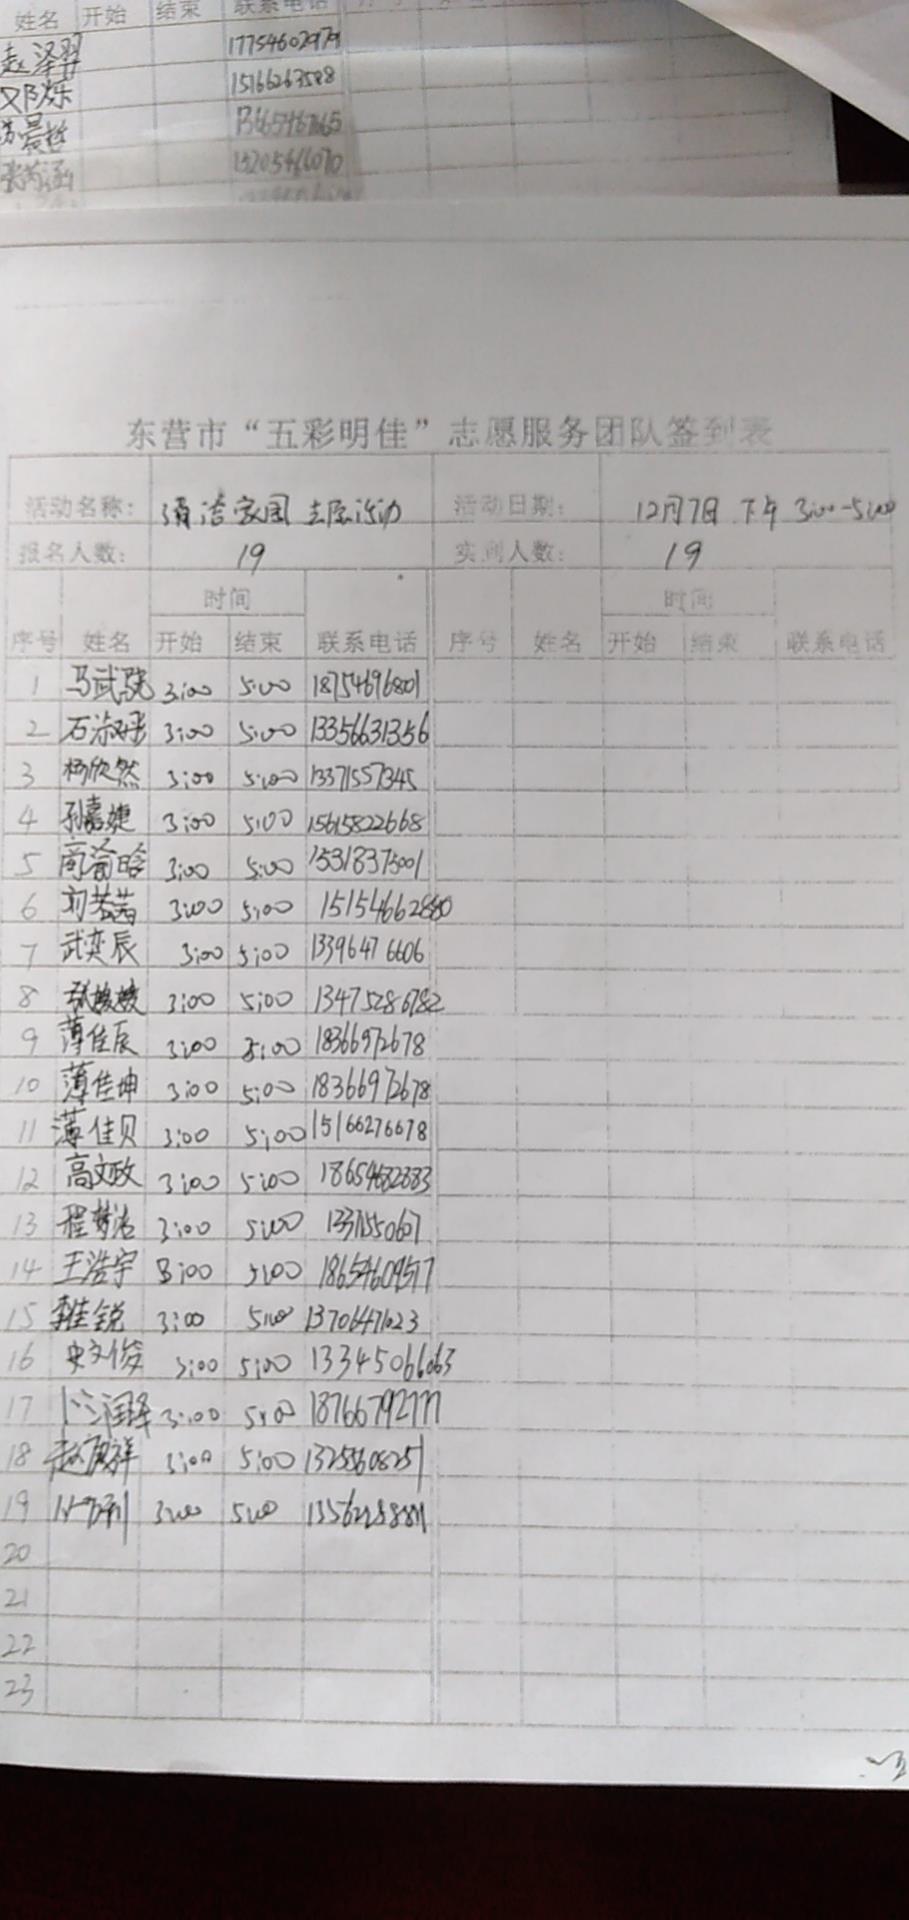 姓名 开始 结束 联系电话
赵泽羿 17754602979
邓烁 15166263588
15205466070
东营市“五彩明佳”志愿服务团队签到表
活动名称： 清洁家园 志愿活动 活动日期： 12月7日 下午 3:00-5:00
报名人数： 19 实到人数： 19
时间 时间
序号 姓名 开始 结束 联系电话 序号 姓名 开始 结束 联系电话
1 马武骁 3:00 5:00 18754696801
2 3:00 5:00 13356631356
3 杨欣然 3:00 5:00 13371557345
4 孙嘉婕 3:00 5:00 15615822668
5 3:00 5:00 15318375001
6 刘若茜 3:00 5:00
7 武奕辰 3:00 5:00 13396476606
8 张媛媛 3:00 5:00 13475286782
9 薄佳辰 3:00 5:00 18366972678
10 薄佳坤 3:00 5:00 18366972678
11 薄佳贝 3:00 5:00 15166276678
12 高文政 3:00 5:00 18654682883
13 程梦洁 3:00 5:00 13371550607
14 王浩宇 3:00 5:00 18654609577
15 3:00 5:00 13706471023
16 史文俊 3:00 5:00 13345066063
17 3:00 5:00 18766792777
18 3:00 5:00 13255608251
19 3:00 5:00
20
21
22
23